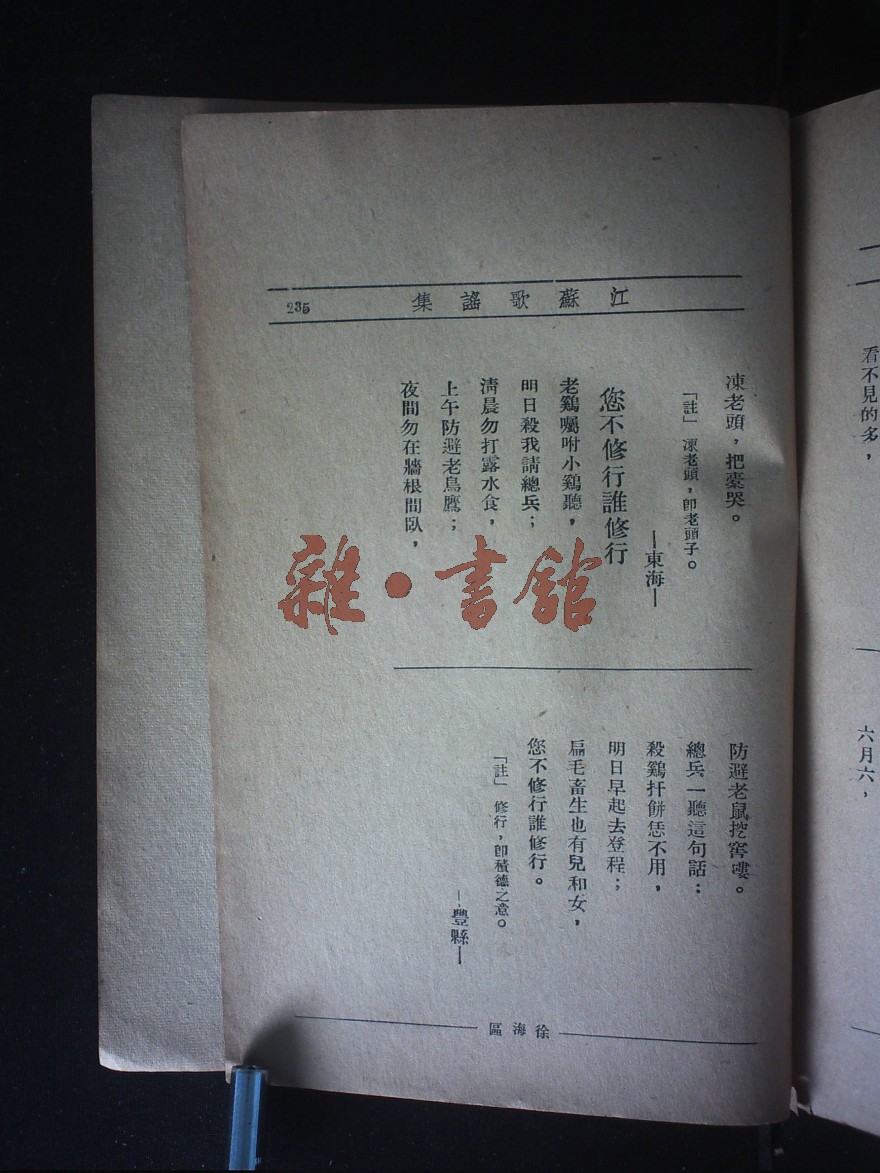 江蘇歌謠集
235
凍老頭，把豪哭。
「註」凍老頭，卽老頭子。
—東海—
您不修行誰修行
老鷄囑咐小鷄聽，
明日殺我請總兵；
清晨勿打露水食，
上午防避老鳥鷹；
夜間勿在牆根間臥，
防避老鼠挖窖嘍。
總兵一聽這句話：
殺鷄扞餅恁不用，
明日早起去登程；
扁毛畜生也有兒和女，
您不修行誰修行。
「註」修行，卽積德之意。
—豐縣—
徐海區
看不見的多，
六月六，
雜·書館